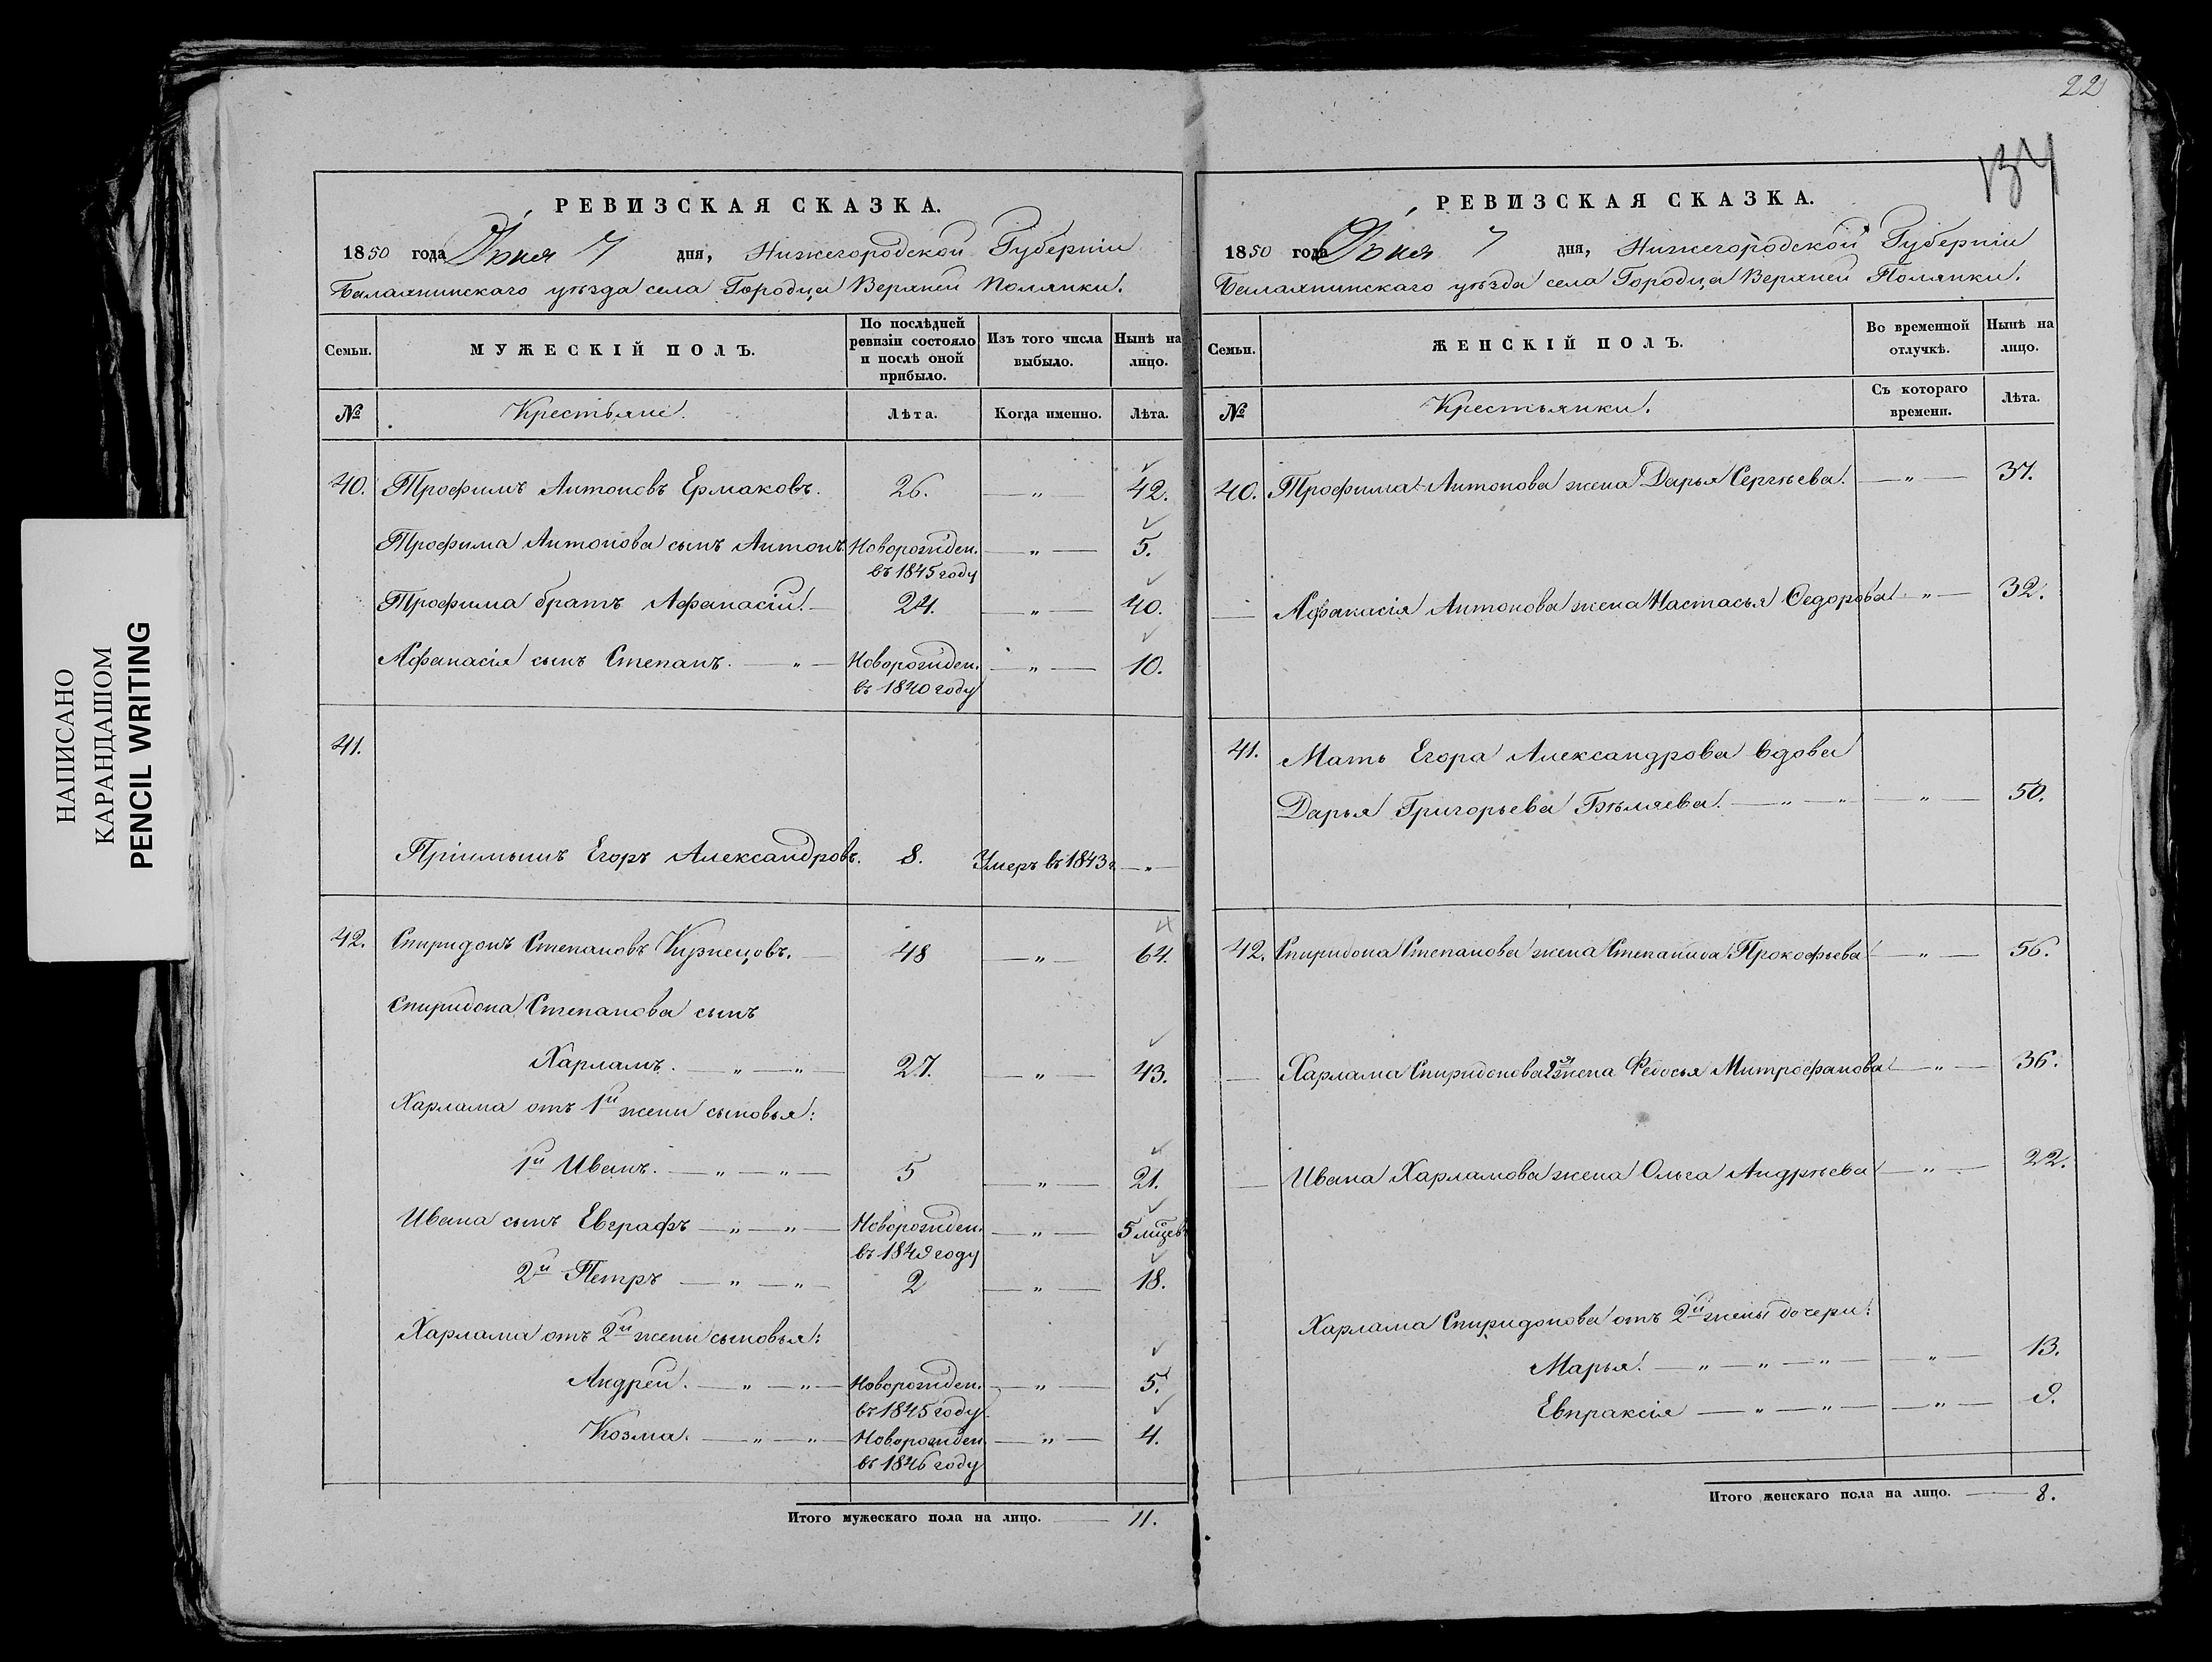 22
134
НАПИСАНО
КАРАНДАШОМ
PENCIL WRITING
РЕВИЗСКАЯ СКАЗКА.
1850 года Іюня 7 дня, Нижегородской Губерніи
Балахнинскаго уѣзда села Городца Верхней Полянки.
Семьи.
МУЖЕСКІЙ ПОЛЪ.
По послѣдней ревизіи состояло и послѣ оной прибыло.
Изъ того числа выбыло.
Нынѣ на лицо.
№
Крестьяне.
Лѣта.
Когда именно.
Лѣта.
40. Трофимъ Антоновъ Ермаковъ. 26. — „ — 42.
Трофима Антонова сынъ Антонъ. Новорожден. — „ — 5.
въ 1845 году
Трофима братъ Афанасій. — 24. — „ — 40.
Афанасія сынъ Степанъ. — „ — Новорожден. — „ — 10.
въ 1840 году
41.
Пріимышъ Егоръ Александровъ. 8. Умеръ въ 1843 г. — „ —
42. Спиридонъ Степановъ Кузнецовъ. — 48 — „ — 64.
Спиридона Степанова сынъ
Харламъ. — „ — „ 27. — „ — 43.
Харлама отъ 1й жены сыновья:
1й Иванъ. — „ — „ — 5 — „ — 21.
Ивана сынъ Евграфъ — „ — „ — Новорожден. — „ — 5 мѣсев.
въ 1849 году
2й Петръ — „ — „ — 2 — „ — 18.
Харлама отъ 2й жены сыновья:
Андрей. — „ — „ — Новорожден. — „ — 5.
въ 1845 году.
Козма. — „ — „ — Новорожден. — „ — 4.
въ 1846 году
Итого мужескаго пола на лицо. — 11.
РЕВИЗСКАЯ СКАЗКА.
1850 года Іюня 7 дня, Нижегородской Губерніи
Балахнинскаго уѣзда села Городца Верхней Полянки.
Семьи.
ЖЕНСКІЙ ПОЛЪ.
Во временной отлучкѣ.
Нынѣ на лицо.
№
Крестьянки.
Съ котораго времени.
Лѣта.
40. Трофима Антонова жена Дарья Сергѣева. — „ — 37.
— Афанасія Антонова жена Настасья Ѳедорова. „ — 32.
41. Мать Егора Александрова вдова
Дарья Григорьева Бѣляева. — „ — „ „ — 50.
42. Спиридона Степанова жена Степанида Прокофьева — „ — 56.
— Харлама Спиридонова 2я жена Федосья Митрофанова — „ — 36.
— Ивана Харламова жена Ольга Андрѣева — „ — 22.
Харлама Спиридонова отъ 2й жены дочери:
Марья. — „ — „ — „ — „ — 13.
Евпраксія — „ — „ — „ — 9.
Итого женскаго пола на лицо. — 8.